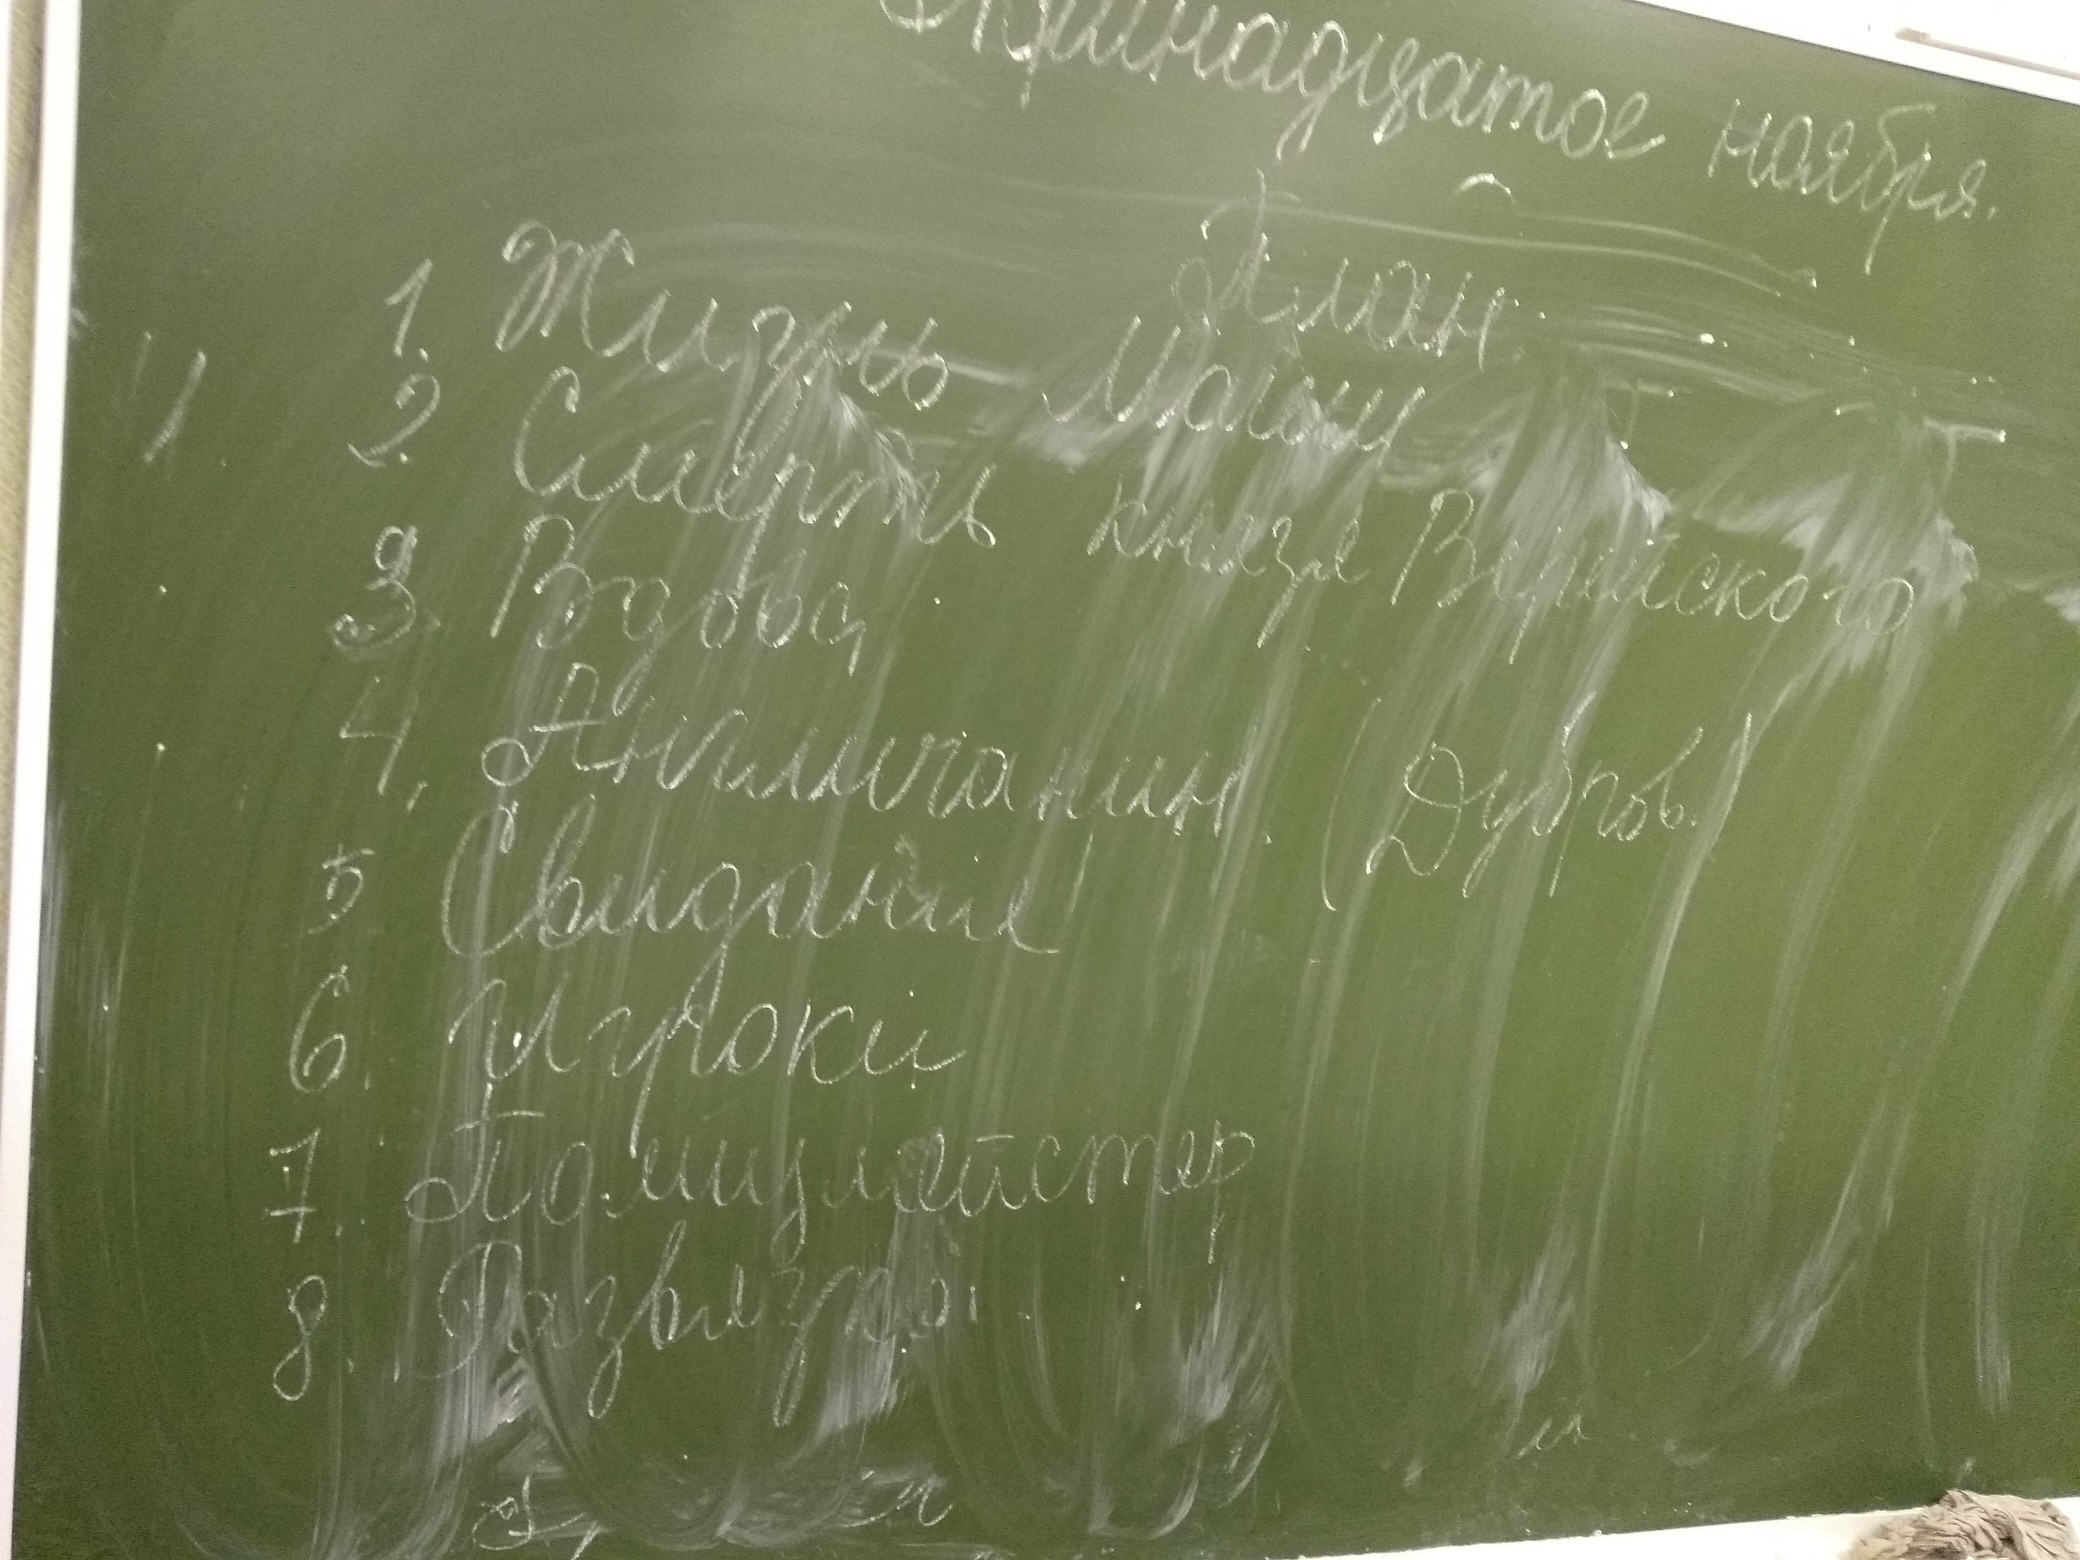 надцатое ноября.
План
1. Жизнь Маши
2. Смерть князя Верейского
3. Вдова
4. Англичанин (Дубров.)
5 Свидание
6. Игроки
7. Полицмейстер
8. Развязка